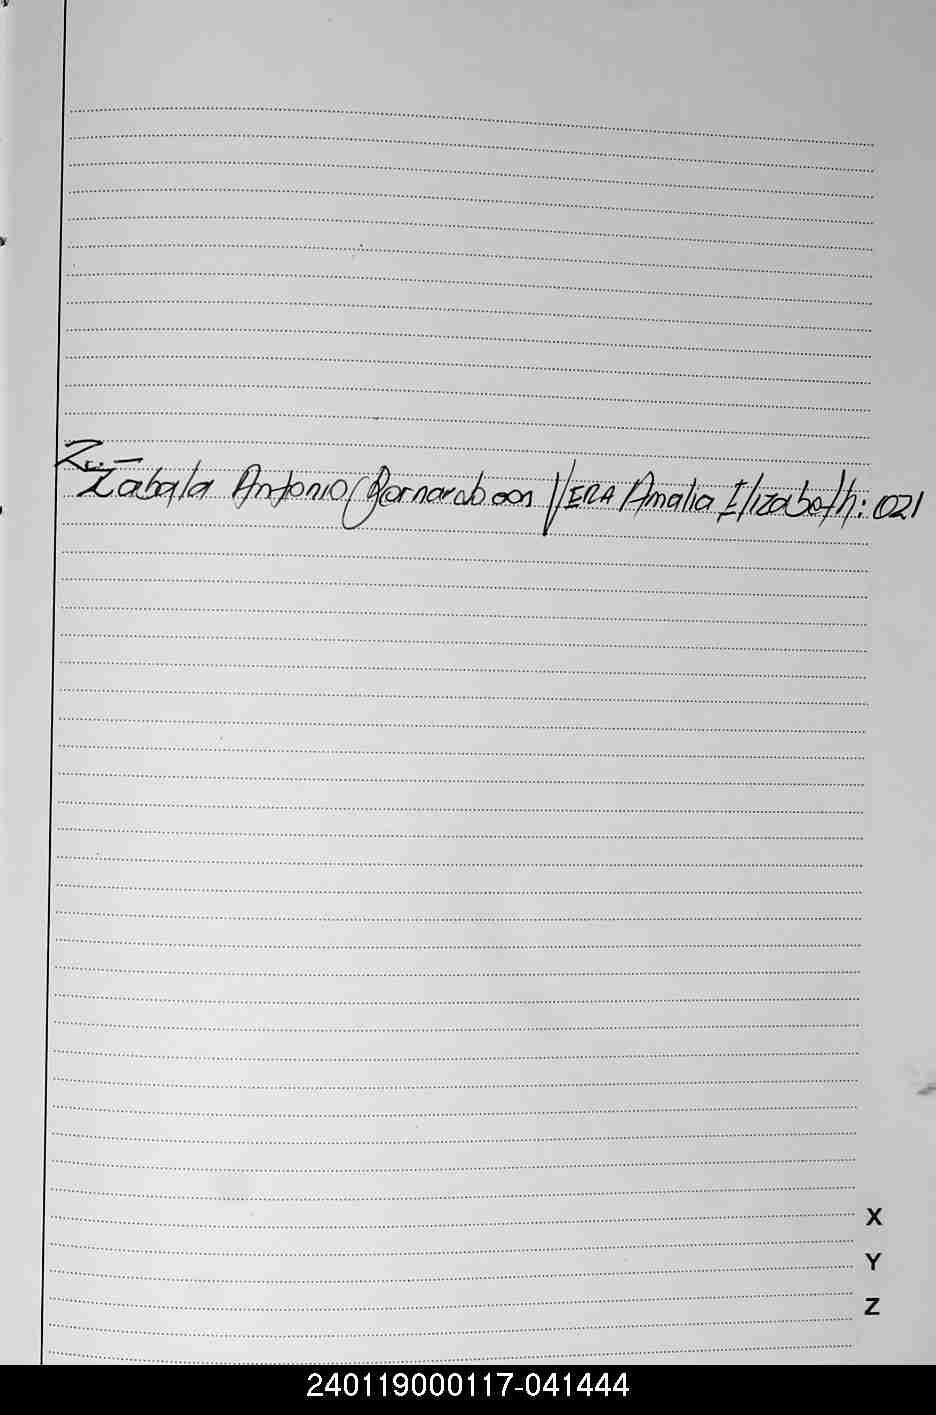 Z.-
Zabala Antonio Bernardo con VERA Amalia Elizabeth: 021
X
Y
Z
240119000117-041444